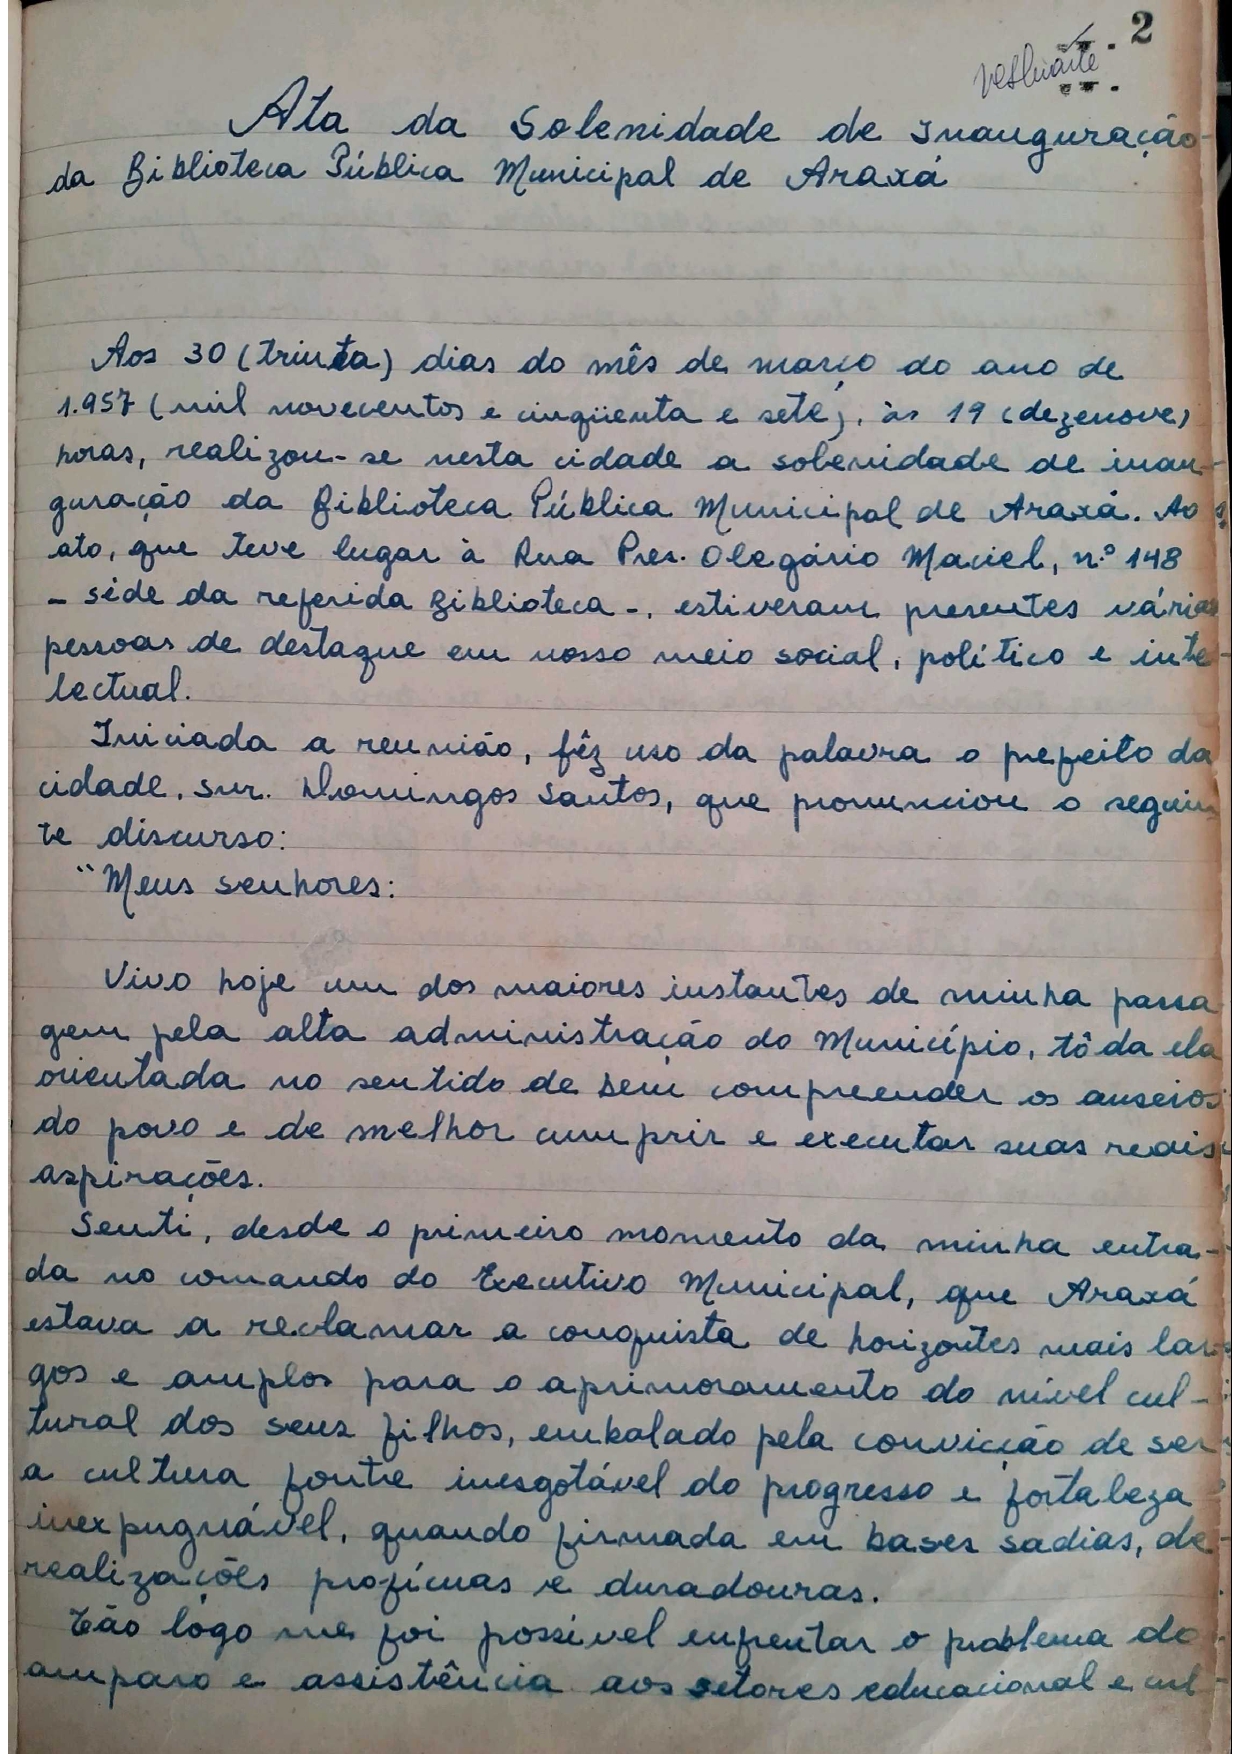 2
Ata da Solenidade de Inauguração
da Biblioteca Pública Municipal de Araxá
Aos 30 (trinta) dias do mês de março do ano de
1.957 (mil novecentos e cinqüenta e sete), às 19 (dezenove)
horas, realizou-se nesta cidade a solenidade de inau-
guração da Biblioteca Pública Municipal de Araxá. Ao
ato, que teve lugar à Rua Pres. Olegário Maciel, n.º 148
- séde da referida Biblioteca -, estiveram presentes várias
pessoas de destaque em nosso meio social, político e inte-
lectual.
Iniciada a reunião, fêz uso da palavra o prefeito da
cidade, snr. Domingos Santos, que pronunciou o seguin
te discurso:
"Meus senhores:
Vivo hoje um dos maiores instantes de minha passa
gem pela alta administração do Município, tôda ela
orientada no sentido de bem compreender os anseios
do povo e de melhor cumprir e executar suas reais
aspirações.
Senti, desde o primeiro momento da minha entra-
da no comando do Executivo Municipal, que Araxá
estava a reclamar a conquista de horizontes mais lar-
gos e amplos para o aprimoramento do nível cul-
tural dos seus filhos, embalado pela convicção de ser
a cultura fonte inesgotável do progresso e fortaleza
inexpugnável, quando firmada em bases sadias, de
realizações profícuas e duradouras.
Tão lógo me foi possível enfrentar o problema do
amparo e assistência aos setores educacional e cul-